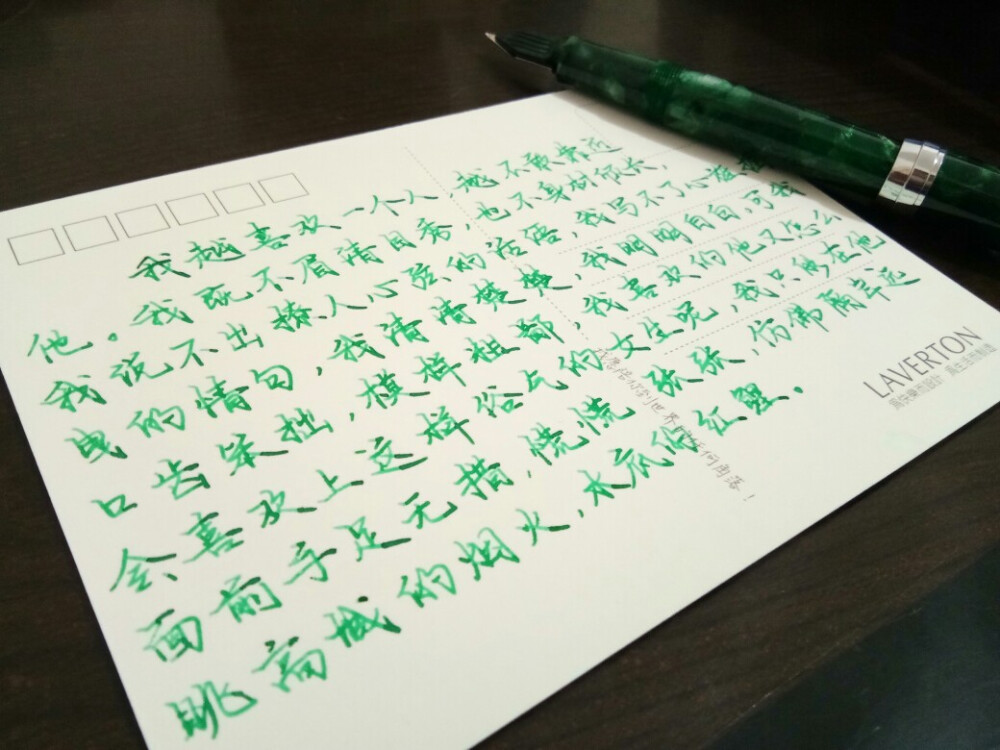 我越喜欢一个人,越不敢靠近
他。我既不眉清目秀,也不身材颀长,
我说不出撩人心弦的话语,我写不了心旌
曳的情句,我清清楚楚,我明明白白,可我
口齿笨拙,模样粗鄙,我喜欢的他又怎么
会喜欢上这样俗气的女生呢,我只能在他
面前手足无措,慌慌张张,仿佛隔岸远
眺高城的烟火,水底的红蟹。
到世界 任何角落!
LAVERTON
為快樂而設計